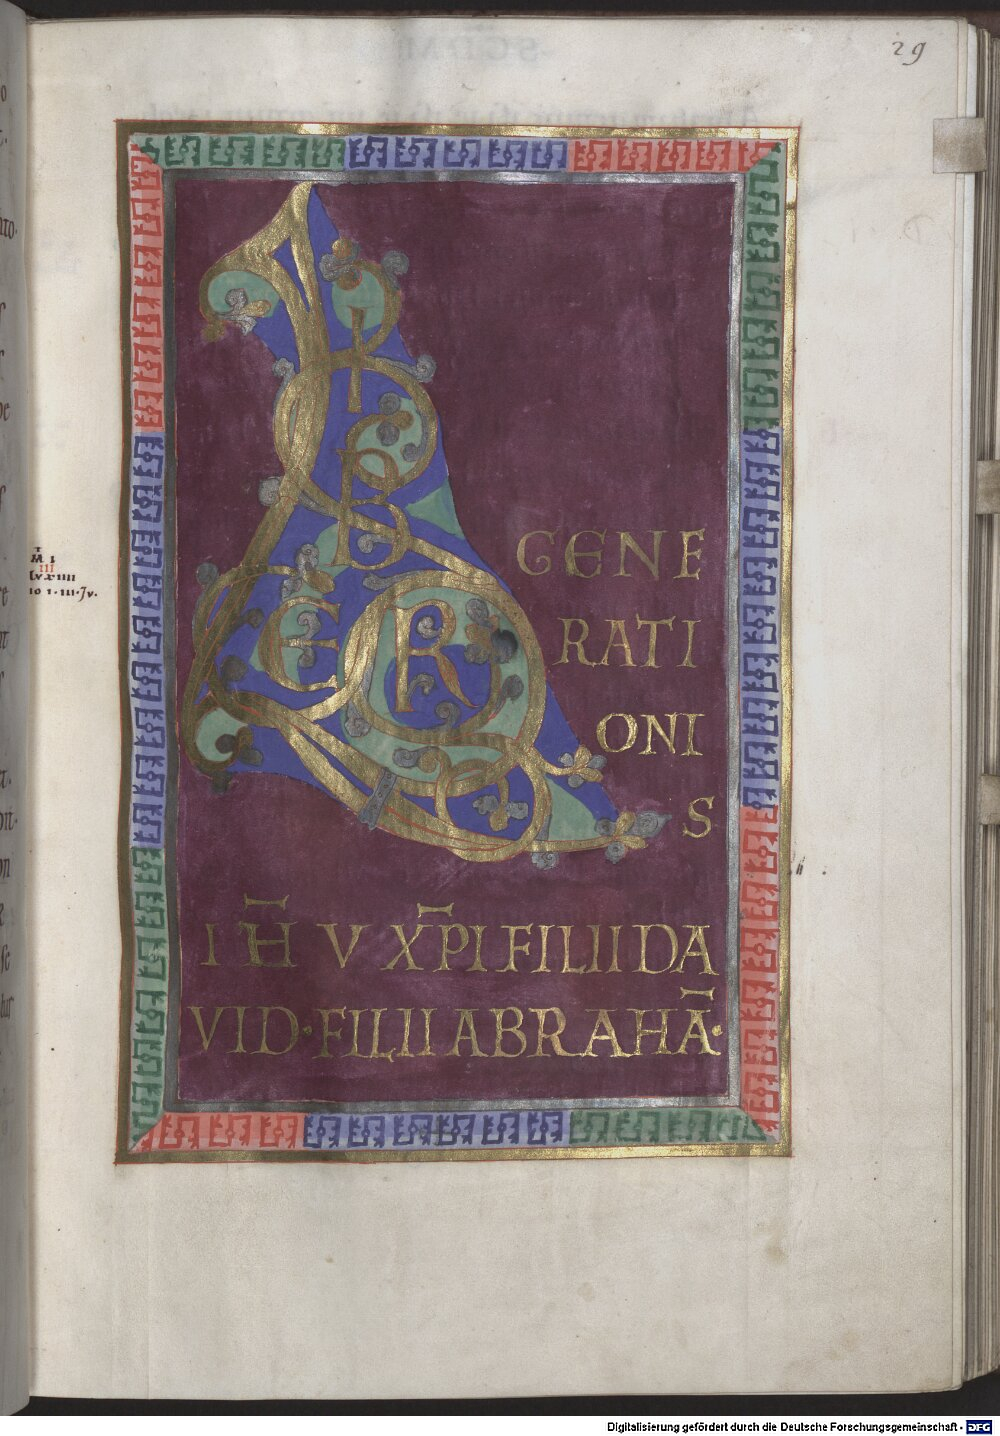 29
L
I
B
ER
GENE
RATI
ONI
S
IH̅V XP̅I FILII DA
VID · FILII ABRAHĀ·
Digitalisierung gefördert durch die Deutsche Forschungsgemeinschaft - DFG